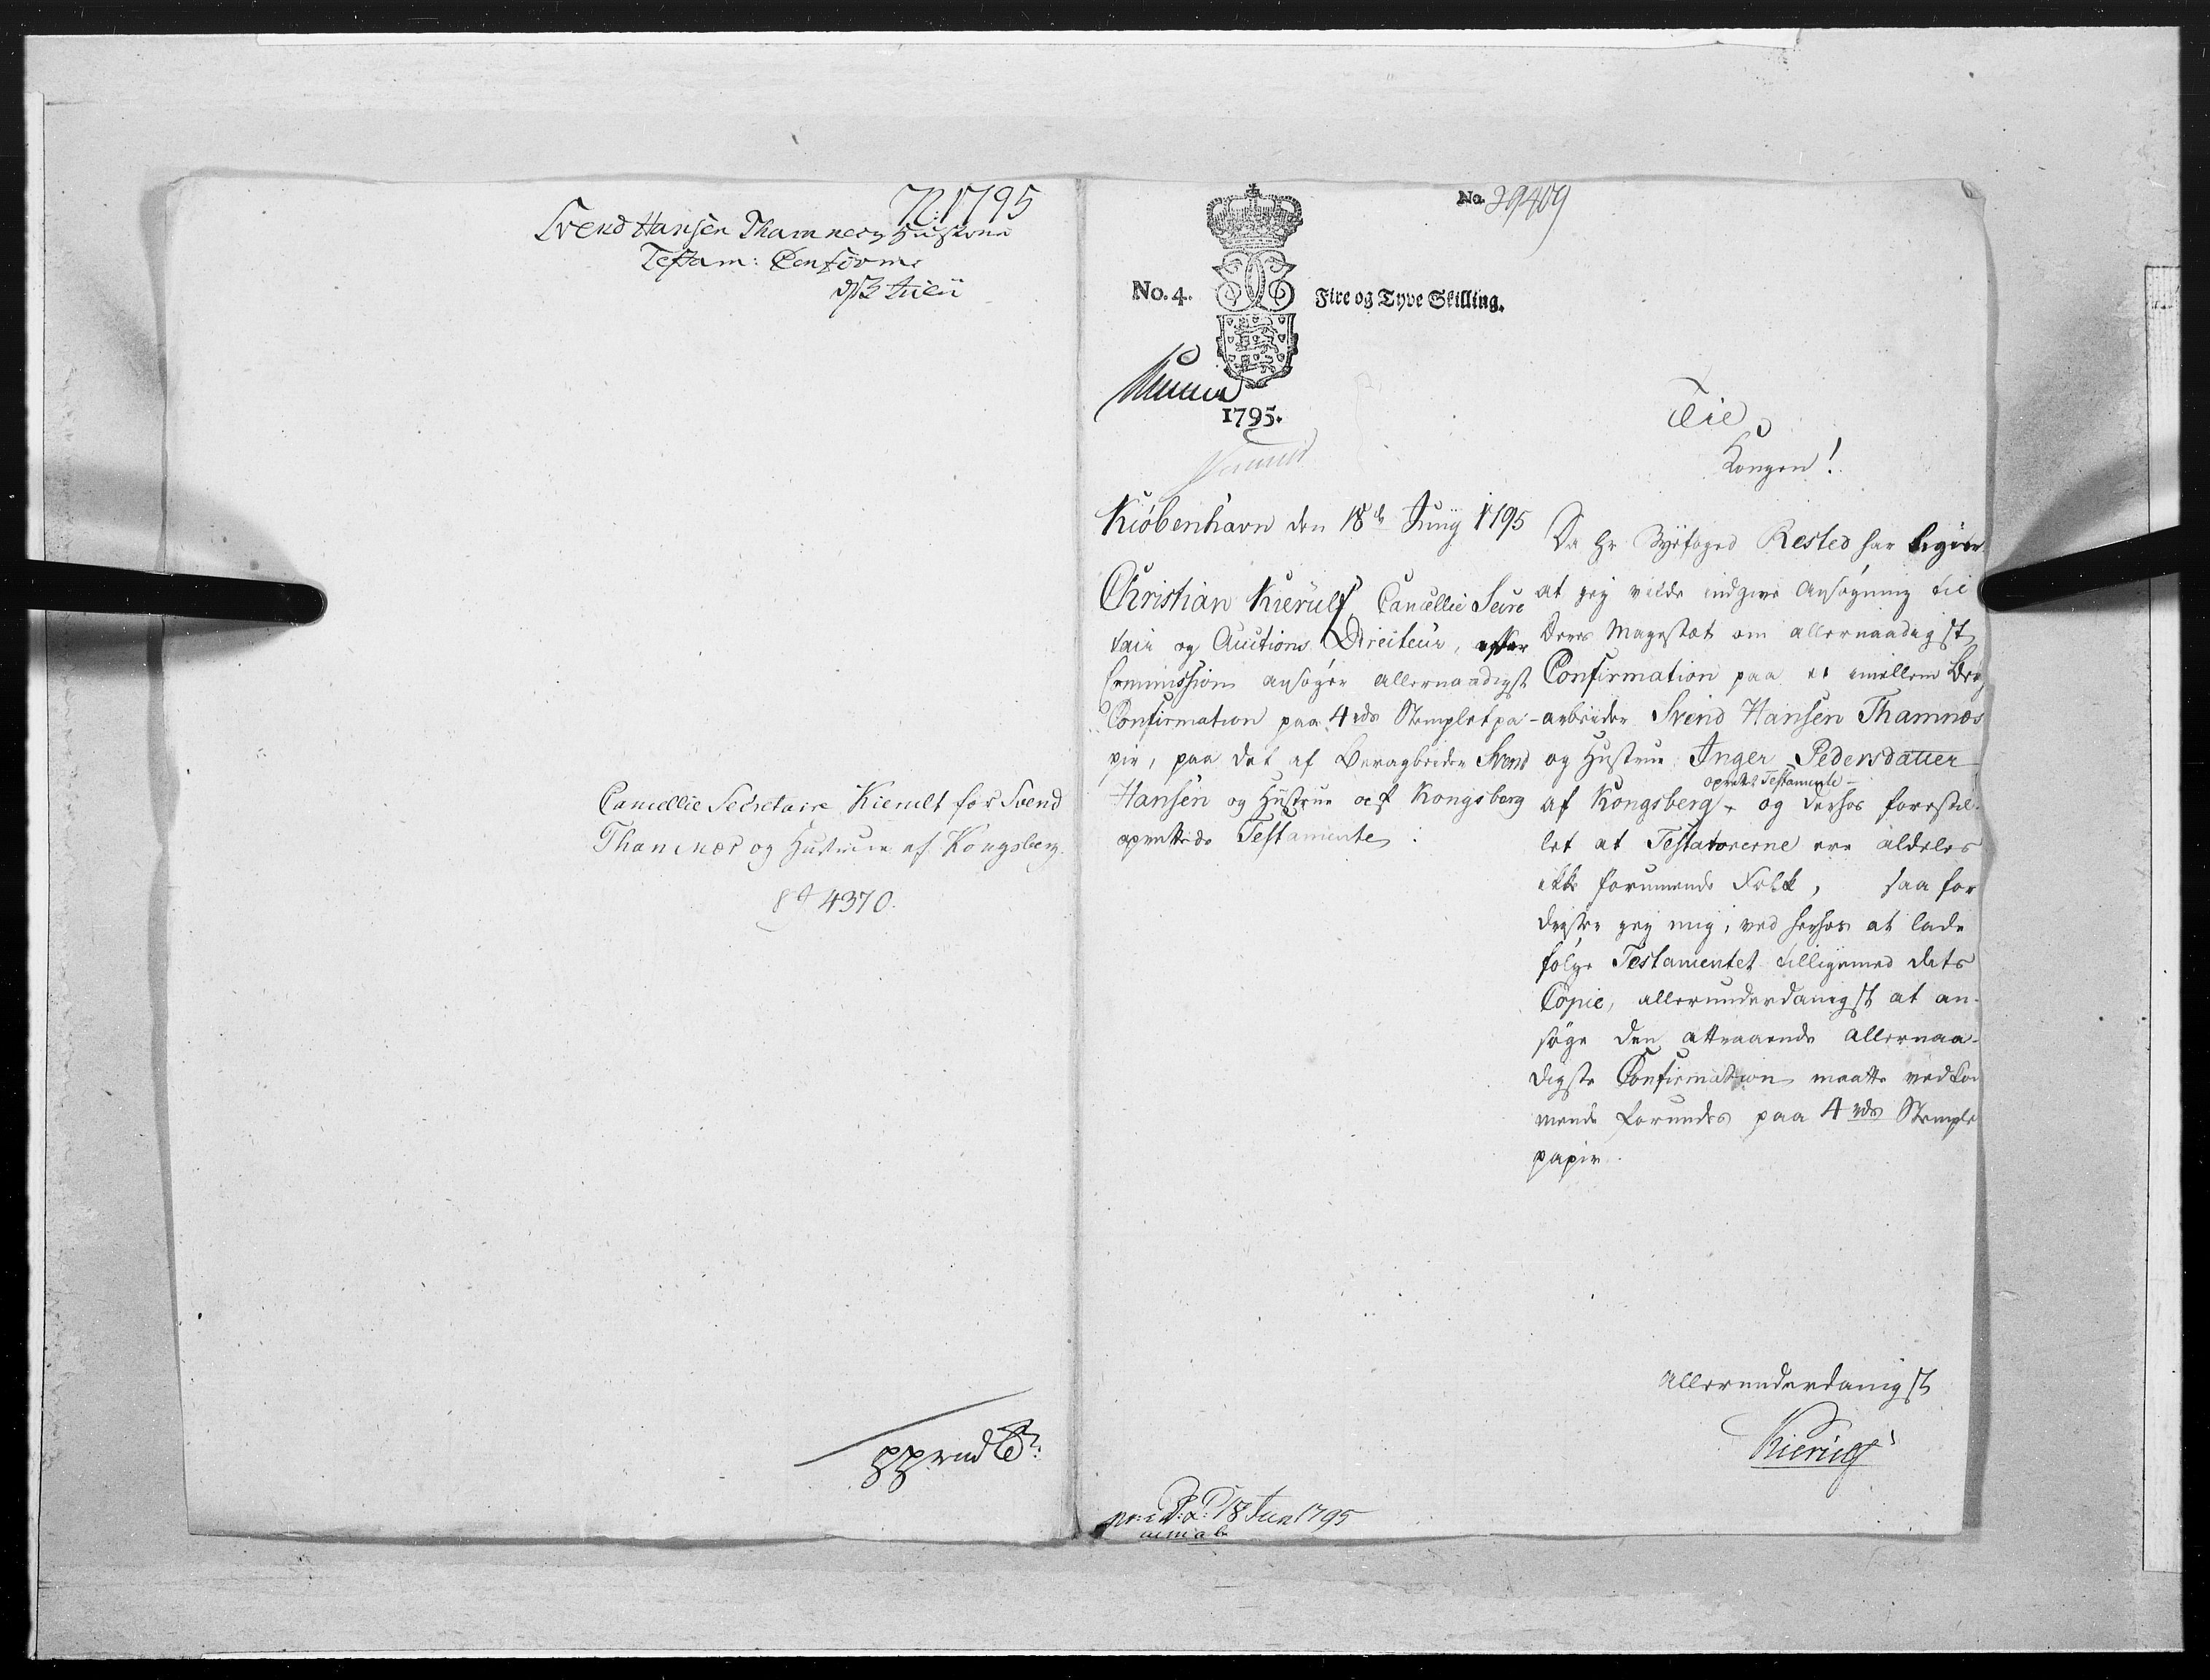 N: 1795
Svend Hansen Thamnes og Hustrues
Testam: Confirm:
d 3 Julii
Cancellie Secretaire Kierulf for Svend
Thamnes og Hustrue af Kongsberg.
4370.
No. 29409
No. 4. Fire og Tyve Skilling.
1795.
Til
Kongen!
Kiöbenhavn den 18de Junij 1795
Christian Kierulf Cancellie Secre
tair og Auctions Directeur, efter
Commission ansöger allernaadigst
Confirmation paa 4 rds Stemplet pa-
pir, paa det af Bergarbeider Svend
Hansen og Hustrue af Kongsberg
oprettede Testamente.
Da Hr Byefoged Rested har begier
at jeg vilde indgive Ansögning til
Deres Mayestæt om allernaadigst
Confirmation paa et imellem Berg
arbeider Svend Hansen Thamnes
og Hustrue Inger Pedersdatter
oprettet Testamente
af Kongsberg, og derhos forestil-
let at Testatorerne ere aldeles
ikke formuende Folk, saa for
drister jeg mig, ved herhos at lade
fölge Testamentet tilligemed dets
Copie, allerunderdanigst at an-
söge den attraaende allernaa-
digste Confirmation maatte vedkom
mende forundes paa 4 rds Stemple
papir.
Allerunderdanigst
Kierulf
18 Jun 1795